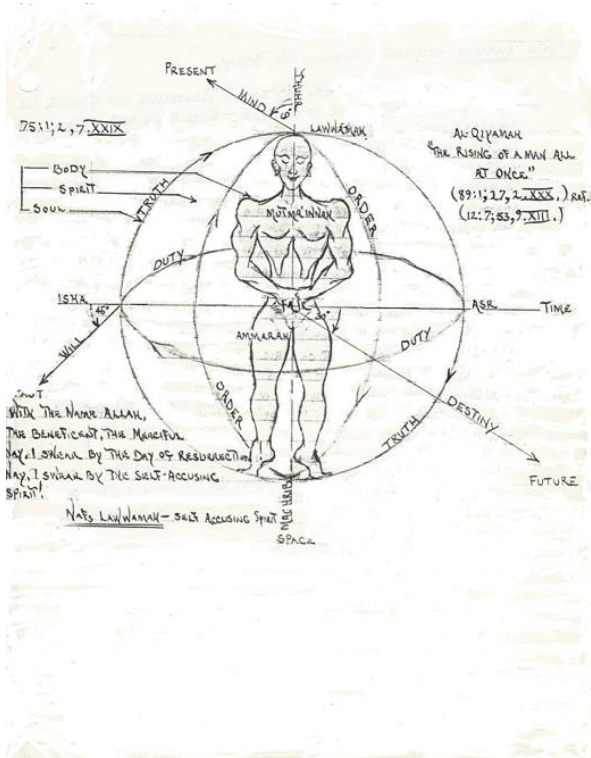 PRESENT
THUHR
MIND
LAWWAMAH
75:1;2,7.XXIX
AL-QIYAMAH
"THE RISING OF A MAN ALL
AT ONCE"
(89:1;27,2.XXX.) REF.
(12:7;53,9.XIII.)
BODY
SPIRIT
SOUL
TRUTH
ORDER
MUTMA'INNAH
DUTY
ISHA
FAJR
ASR
TIME
45°
WILL
AMMARAH
DUTY
DESTINY
ORDER
TRUTH
FUTURE
WITH THE NAME ALLAH,
THE BENEFICENT, THE MERCIFUL
NAY, I SWEAR BY THE DAY OF RESURRECTION
NAY, I SWEAR BY THE SELF-ACCUSING
SPIRIT!
NAFS LAWWAMAH - SELF ACCUSING SPIRIT
MAGHRIB
SPACE